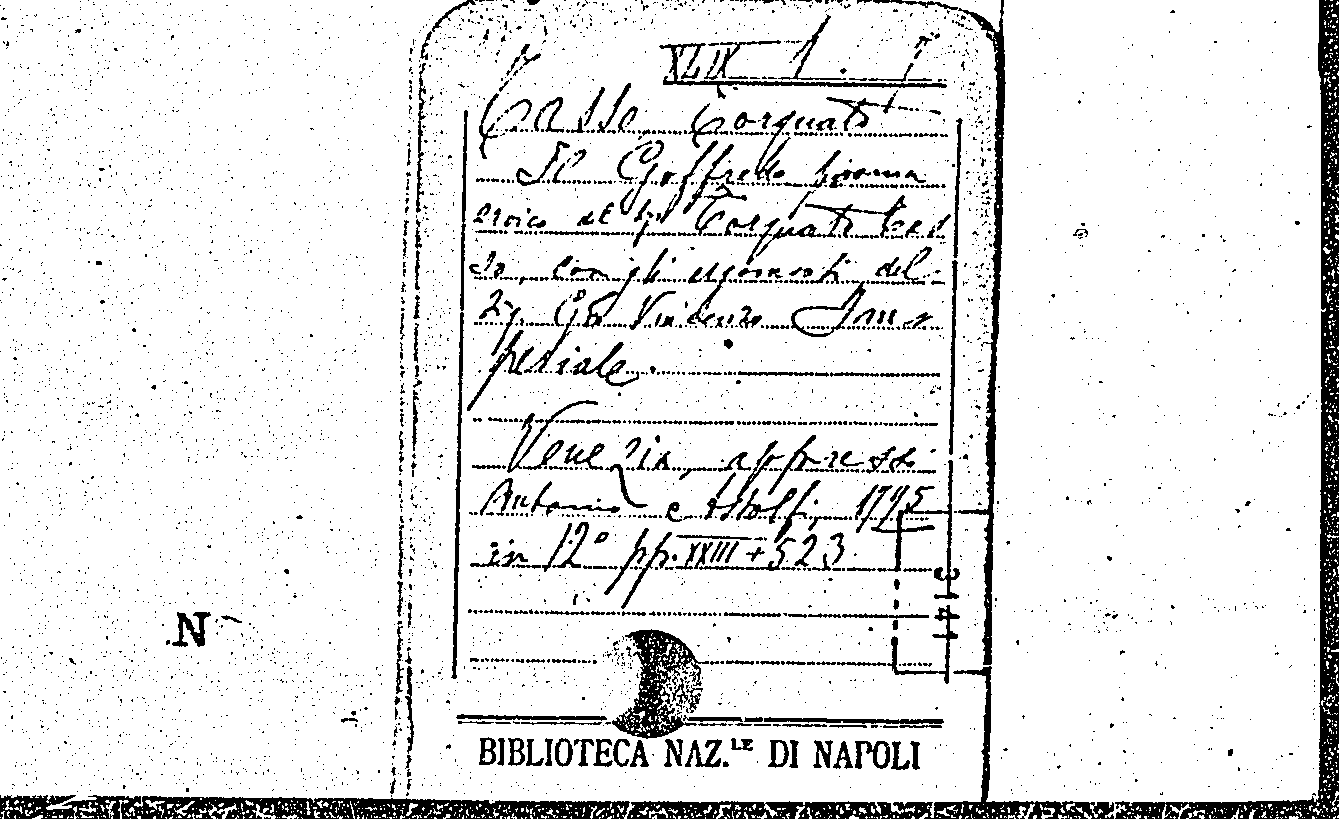 XLIX 1. 7
Tasso Torquato
Il Goffredo poema
eroico del Sig. Torquato Tas
so, con gli argomenti del
Sig. Gio Vincenzo Im
periale.
Venezia, appresso
Antonio Astolfi, 1795
in 12° pp. XXIII + 523
3141
N
BIBLIOTECA NAZ.LE DI NAPOLI